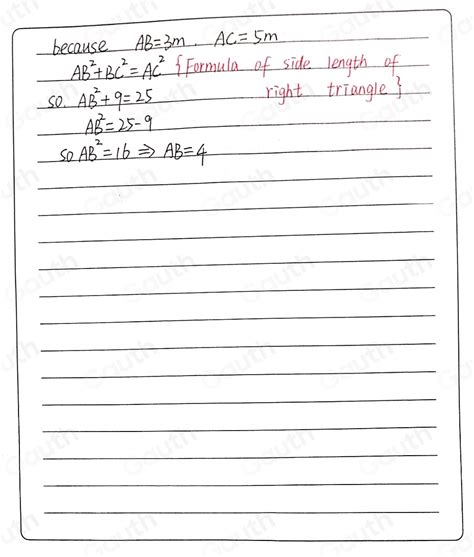 because AB=3m. AC=5m
AB²+BC²=AC² {Formula of side length of
right triangle}
so AB²+9=25
AB²=25-9
so AB²=16 ⇒ AB=4